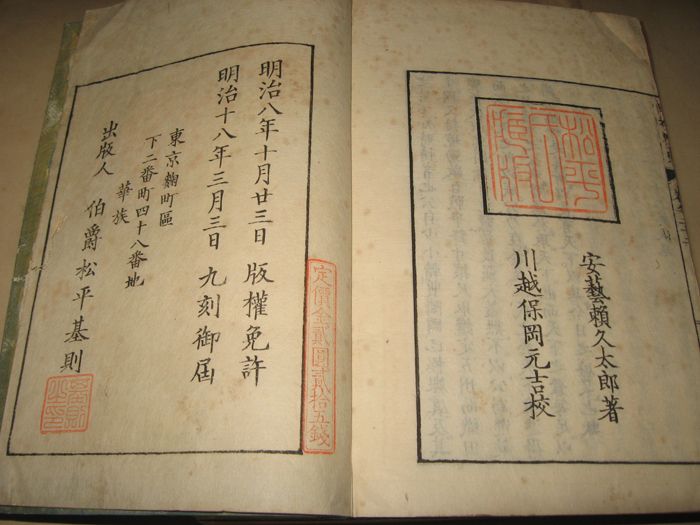 安藝賴久太郎著
川越保岡元吉校
明治八年十月廿三日 版權免許
明治十八年三月三日 九刻御届
東京麹町區
下二番町四十八番地
華族
出版人 伯爵松平基則
定價金貳圓貳拾五錢